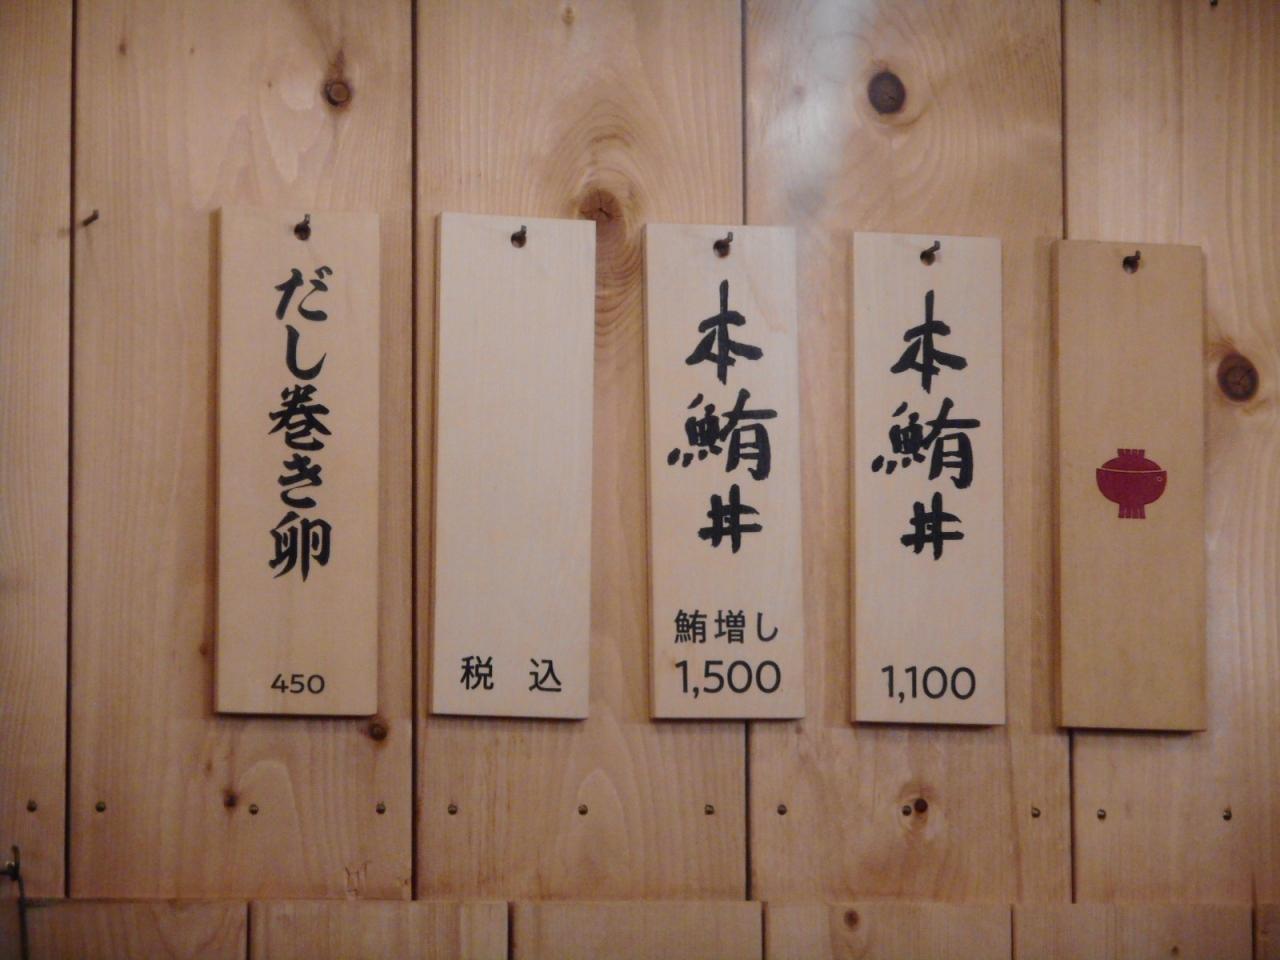 本鮪丼
1,100
本鮪丼
鮪増し
1,500
税込
だし巻き卵
450